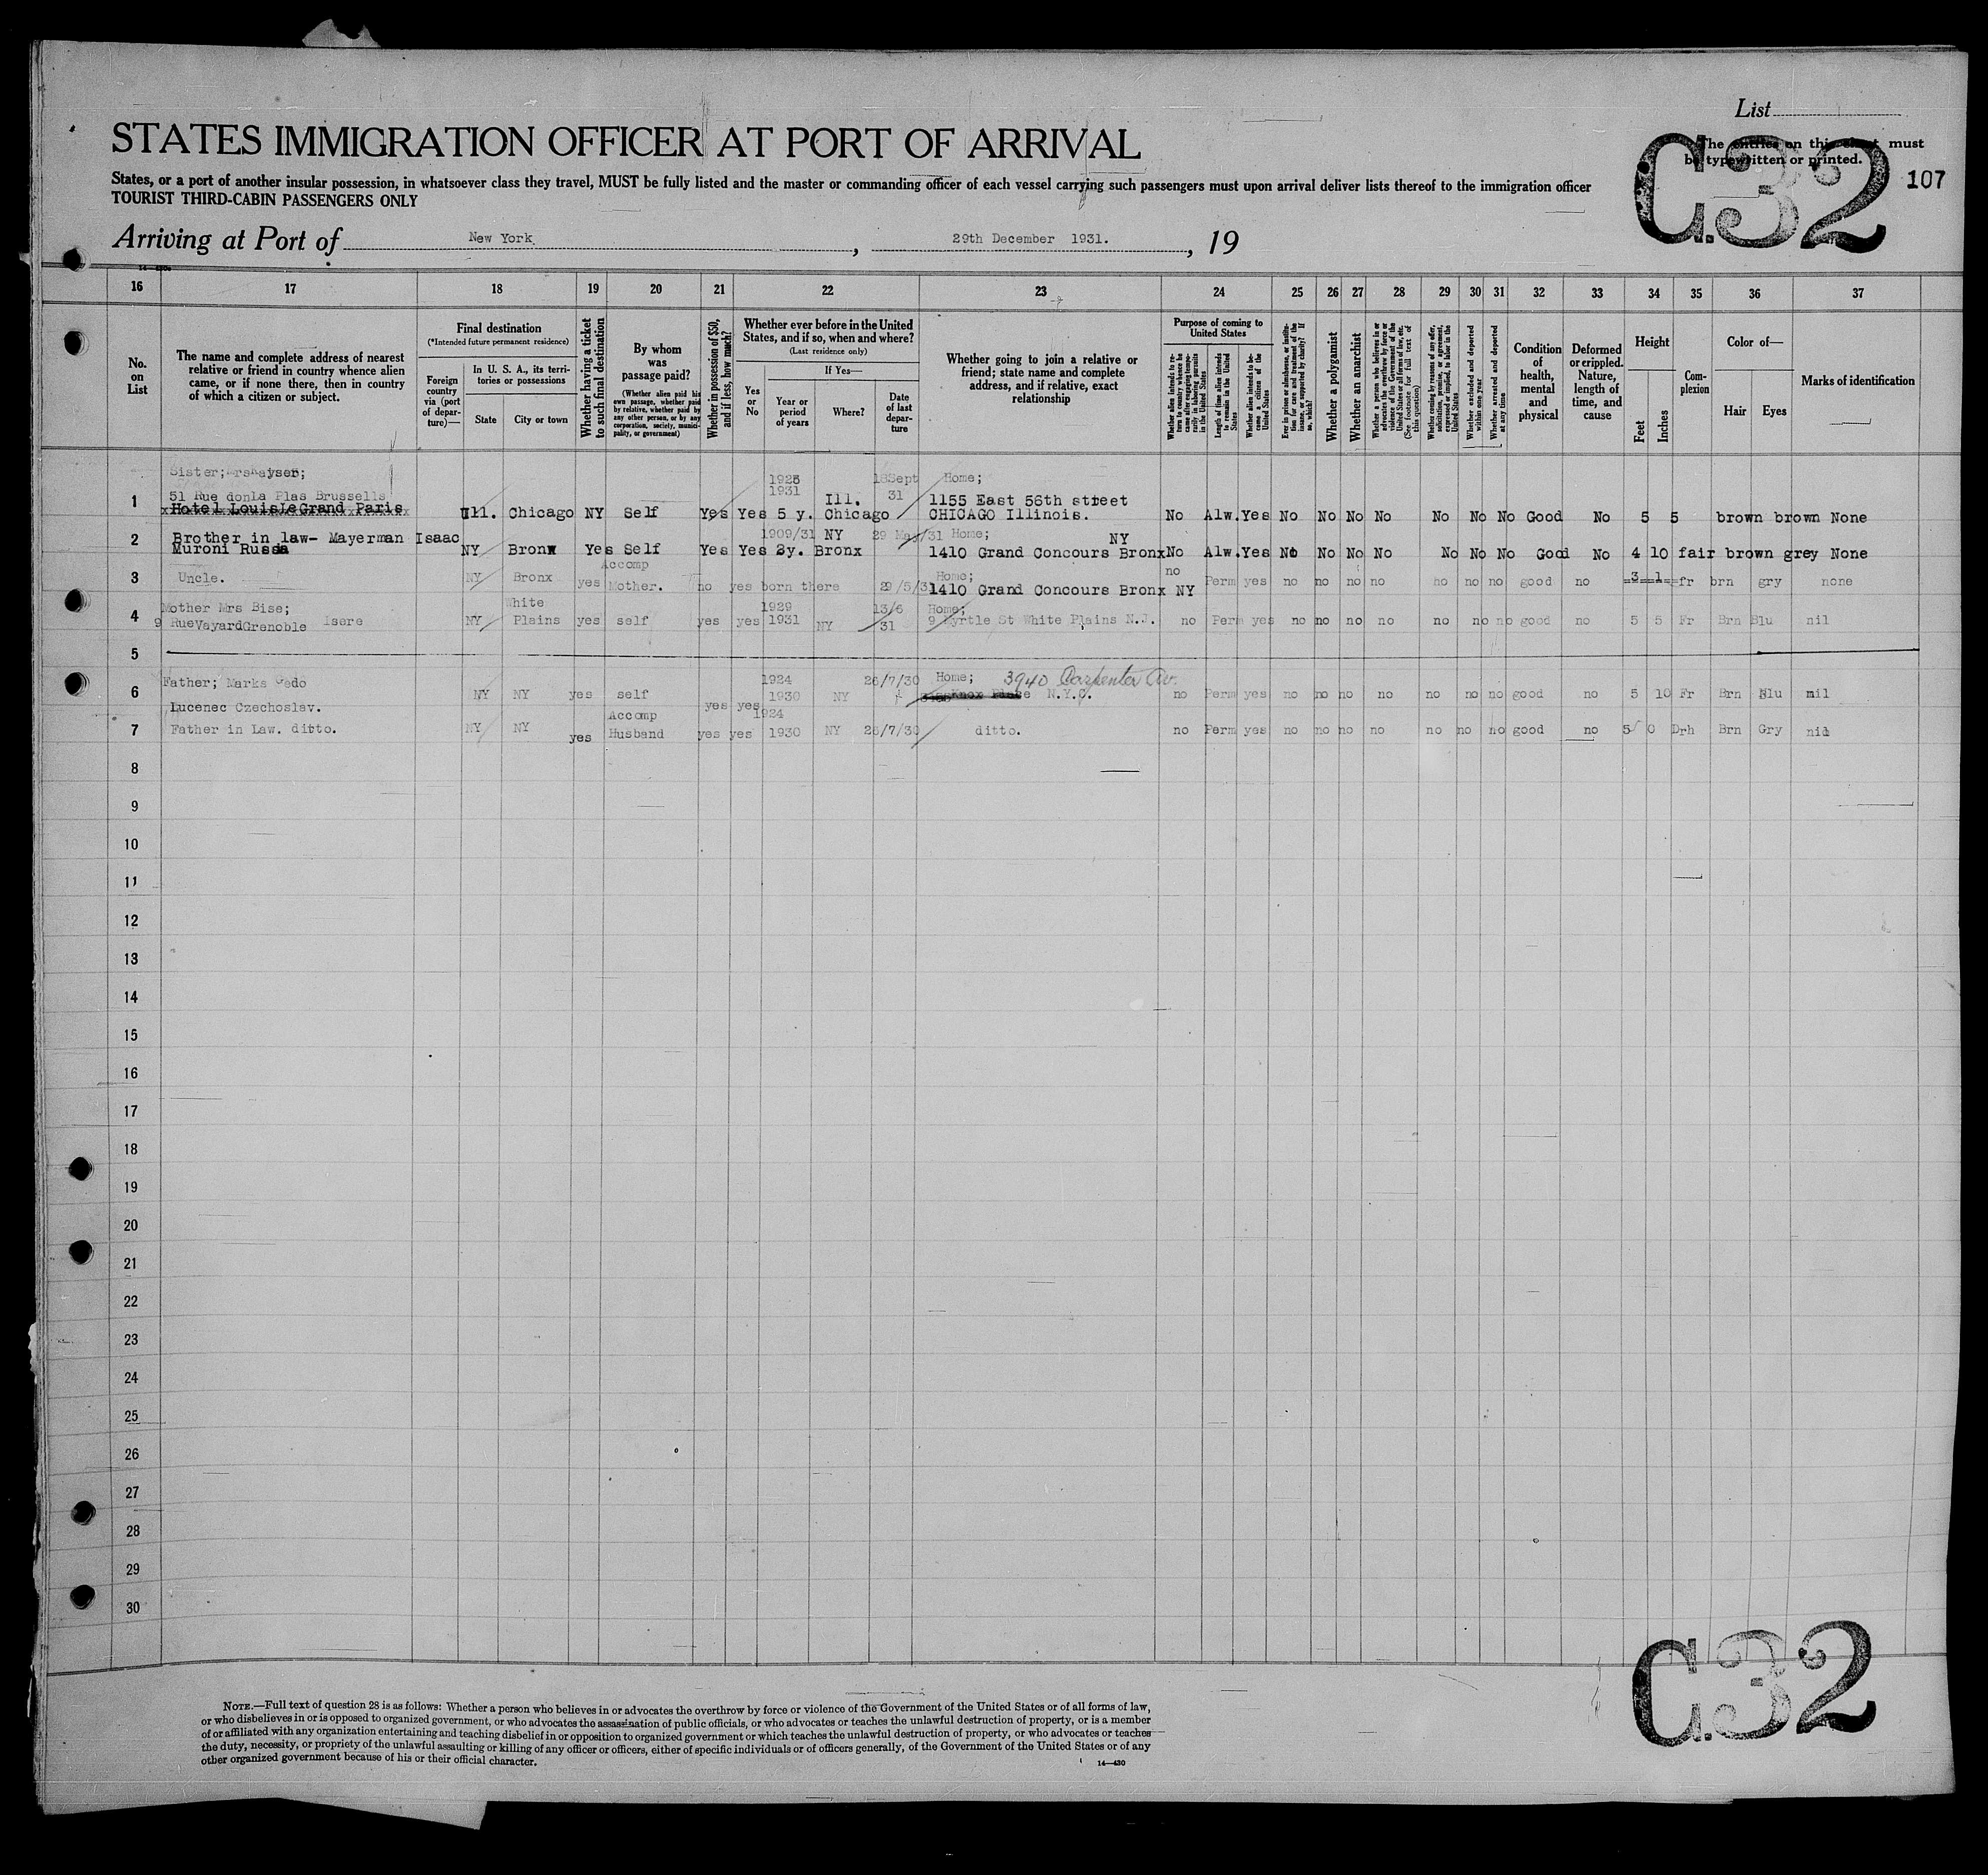 List
The entries on this sheet must
be typewritten or printed.
C.32
107
STATES IMMIGRATION OFFICER AT PORT OF ARRIVAL
States, or a port of another insular possession, in whatsoever class they travel, MUST be fully listed and the master or commanding officer of each vessel carrying such passengers must upon arrival deliver lists thereof to the immigration officer
TOURIST THIRD-CABIN PASSENGERS ONLY
Arriving at Port of New York, 29th December 1931., 19
16 17 18 19 20 21 22 23 24 25 26 27 28 29 30 31 32 33 34 35 36 37
No. on List
The name and complete address of nearest
relative or friend in country whence alien
came, or if none there, then in country
of which a citizen or subject.
Final destination
(*Intended future permanent residence)
Foreign country via (port of departure)—
In U. S. A., its territories or possessions
State
City or town
Whether having a ticket to such final destination
By whom was passage paid?
(Whether alien paid his own passage, whether paid by relative, whether paid by any other person, or by any corporation, society, municipality, or government)
Whether in possession of $50, and if less, how much?
Whether ever before in the United States, and if so, when and where?
(Last residence only)
Yes or No
If Yes—
Year or period of years
Where?
Date of last departure
Whether going to join a relative or
friend; state name and complete
address, and if relative, exact
relationship
Purpose of coming to United States
Whether alien intends to return to country whence he came after engaging temporarily in laboring pursuits in the United States
Length of time alien intends to remain in the United States
Whether alien intends to become a citizen of the United States
Ever in prison or almshouse, or institution for care and treatment of the insane, or supported by charity? If so, which?
Whether a polygamist
Whether an anarchist
Whether a person who believes in or advocates the overthrow by force or violence of the Government of the United States or all forms of law, etc. (See footnote for full text of this question)
Whether coming by reasons of any offer, solicitation, promise, or agreement, expressed or implied, to labor in the United States
Whether excluded and deported within one year
Whether arrested and deported at any time
Condition of health, mental and physical
Deformed or crippled. Nature, length of time, and cause
Height
Feet
Inches
Complexion
Color of—
Hair
Eyes
Marks of identification
Sister;
1925 18Sept Home;
51 Rue donLa Plas Brussells 1931 Ill. 31 1155 East 56th street
1 Hotel LouisLeGrand Paris Ill. Chicago NY Self Yes Yes 5 y. Chicago CHICAGO Illinois. No Alw. Yes No No No No No No No Good No 5 5 brown brown None
2 Brother in law- Mayerman Isaac 1909/31 NY 29 May/31 Home; NY
Muroni Russa NY Bronx Yes Self Yes Yes 2y. Bronx 1410 Grand Concours Bronx No Alw. Yes No No No No No No No Good No 4 10 fair brown grey None
3 Uncle. NY Bronx yes Accomp Mother. no yes born there 29/5/31 Home;
1410 Grand Concours Bronx NY no Perm yes no no no no no no no good no 3 1 fr brn gry none
4 Mother Mrs Bise; White 1929 13/6 Home;
9 RueVayardGrenoble Isere NY Plains yes self yes yes 1931 NY 31 9 Myrtle St White Plains N.J. no Perm yes no no no no no no no good no 5 5 Fr Brn Blu nil
5
6 Father; Marks Gedo 1924 26/7/30 Home; 3940 Carpenter Av.
NY NY yes self yes yes 1930 NY N.Y.C. no Perm yes no no no no no no no good no 5 10 Fr Brn Blu nil
Lucenec Czechoslav.
7 Father in Law. ditto. NY NY yes Accomp Husband yes yes 1924 1930 NY 26/7/30 ditto. no Perm yes no no no no no no no good no 5 0 Drh Brn Gry nil
8
9
10
11
12
13
14
15
16
17
18
19
20
21
22
23
24
25
26
27
28
29
30
NOTE.—Full text of question 28 is as follows: Whether a person who believes in or advocates the overthrow by force or violence of the Government of the United States or of all forms of law,
or who disbelieves in or is opposed to organized government, or who advocates the assassination of public officials, or who advocates or teaches the unlawful destruction of property, or is a member
of or affiliated with any organization entertaining and teaching disbelief in or opposition to organized government or which teaches the unlawful destruction of property, or who advocates or teaches
the duty, necessity, or propriety of the unlawful assaulting or killing of any officer or officers, either of specific individuals or of officers generally, of the Government of the United States or of any
other organized government because of his or their official character.
14—430
C.32